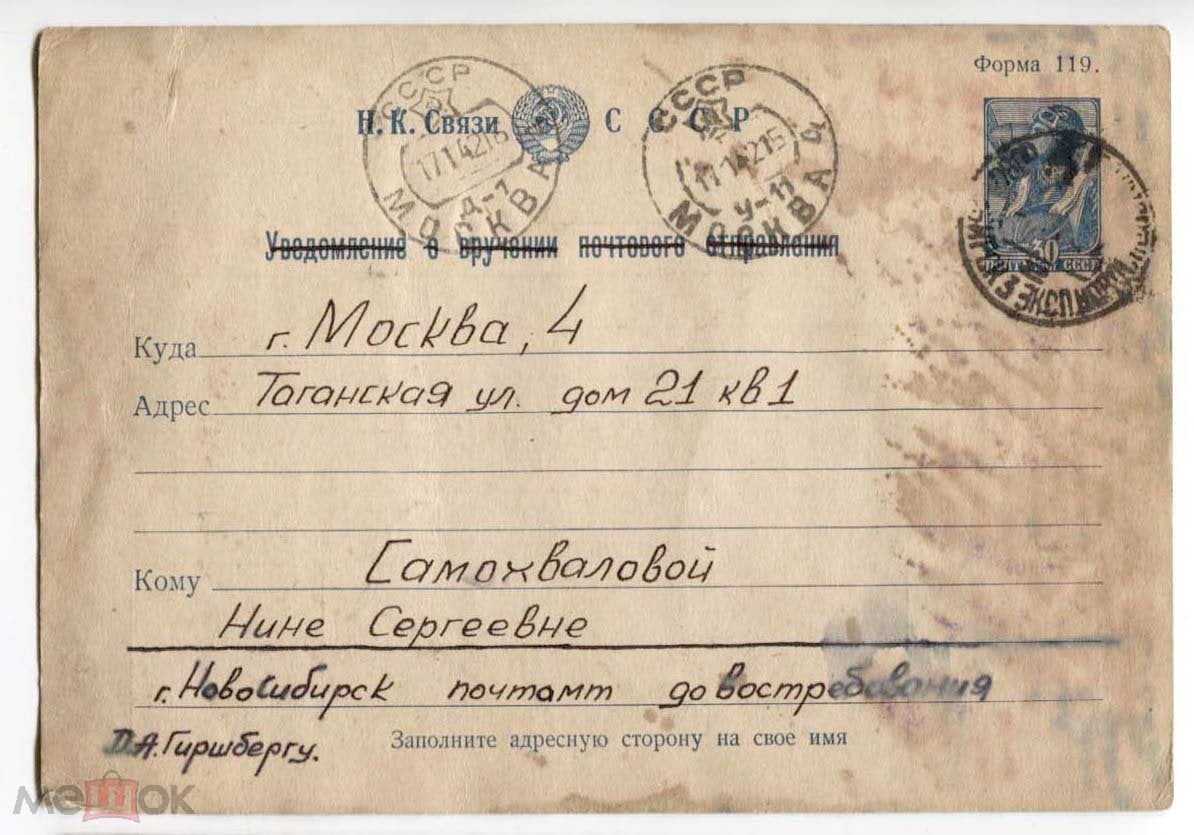 Форма 119.
Н. К. Связи СССР
СССР 17 1 42 16 Д-7 МОСКВА
СССР 17 1 42 15 У-13 МОСКВА 4
30
ПОЧТА СССР
Уведомление о вручении почтового отправления
Куда г. Москва, 4
Адрес Таганская ул. дом 21 кв 1
Кому Самохваловой
Нине Сергеевне
г. Новосибирск почтамт довостребования
Д.А. Гиршбергу.
Заполните адресную сторону на свое имя
мешок